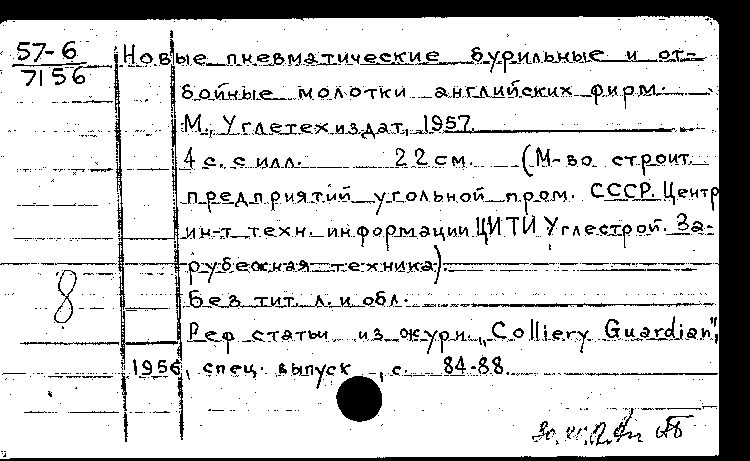 57-6
7156
Новые пневматические бурильные и от-
бойные молотки английских фирм.
М., Углетехиздат, 1957.
4 с. с илл. 22 см. (М-во строит.
предприятий угольной пром. СССР. Центр
ин-т техн. информации ЦИТИ Углестрой. За-
рубежная техника).
8
Без тит. л. и обл.
Реф статьи из журн. „Colliery Guardian",
1956, спец. выпуск, с. 84-88.